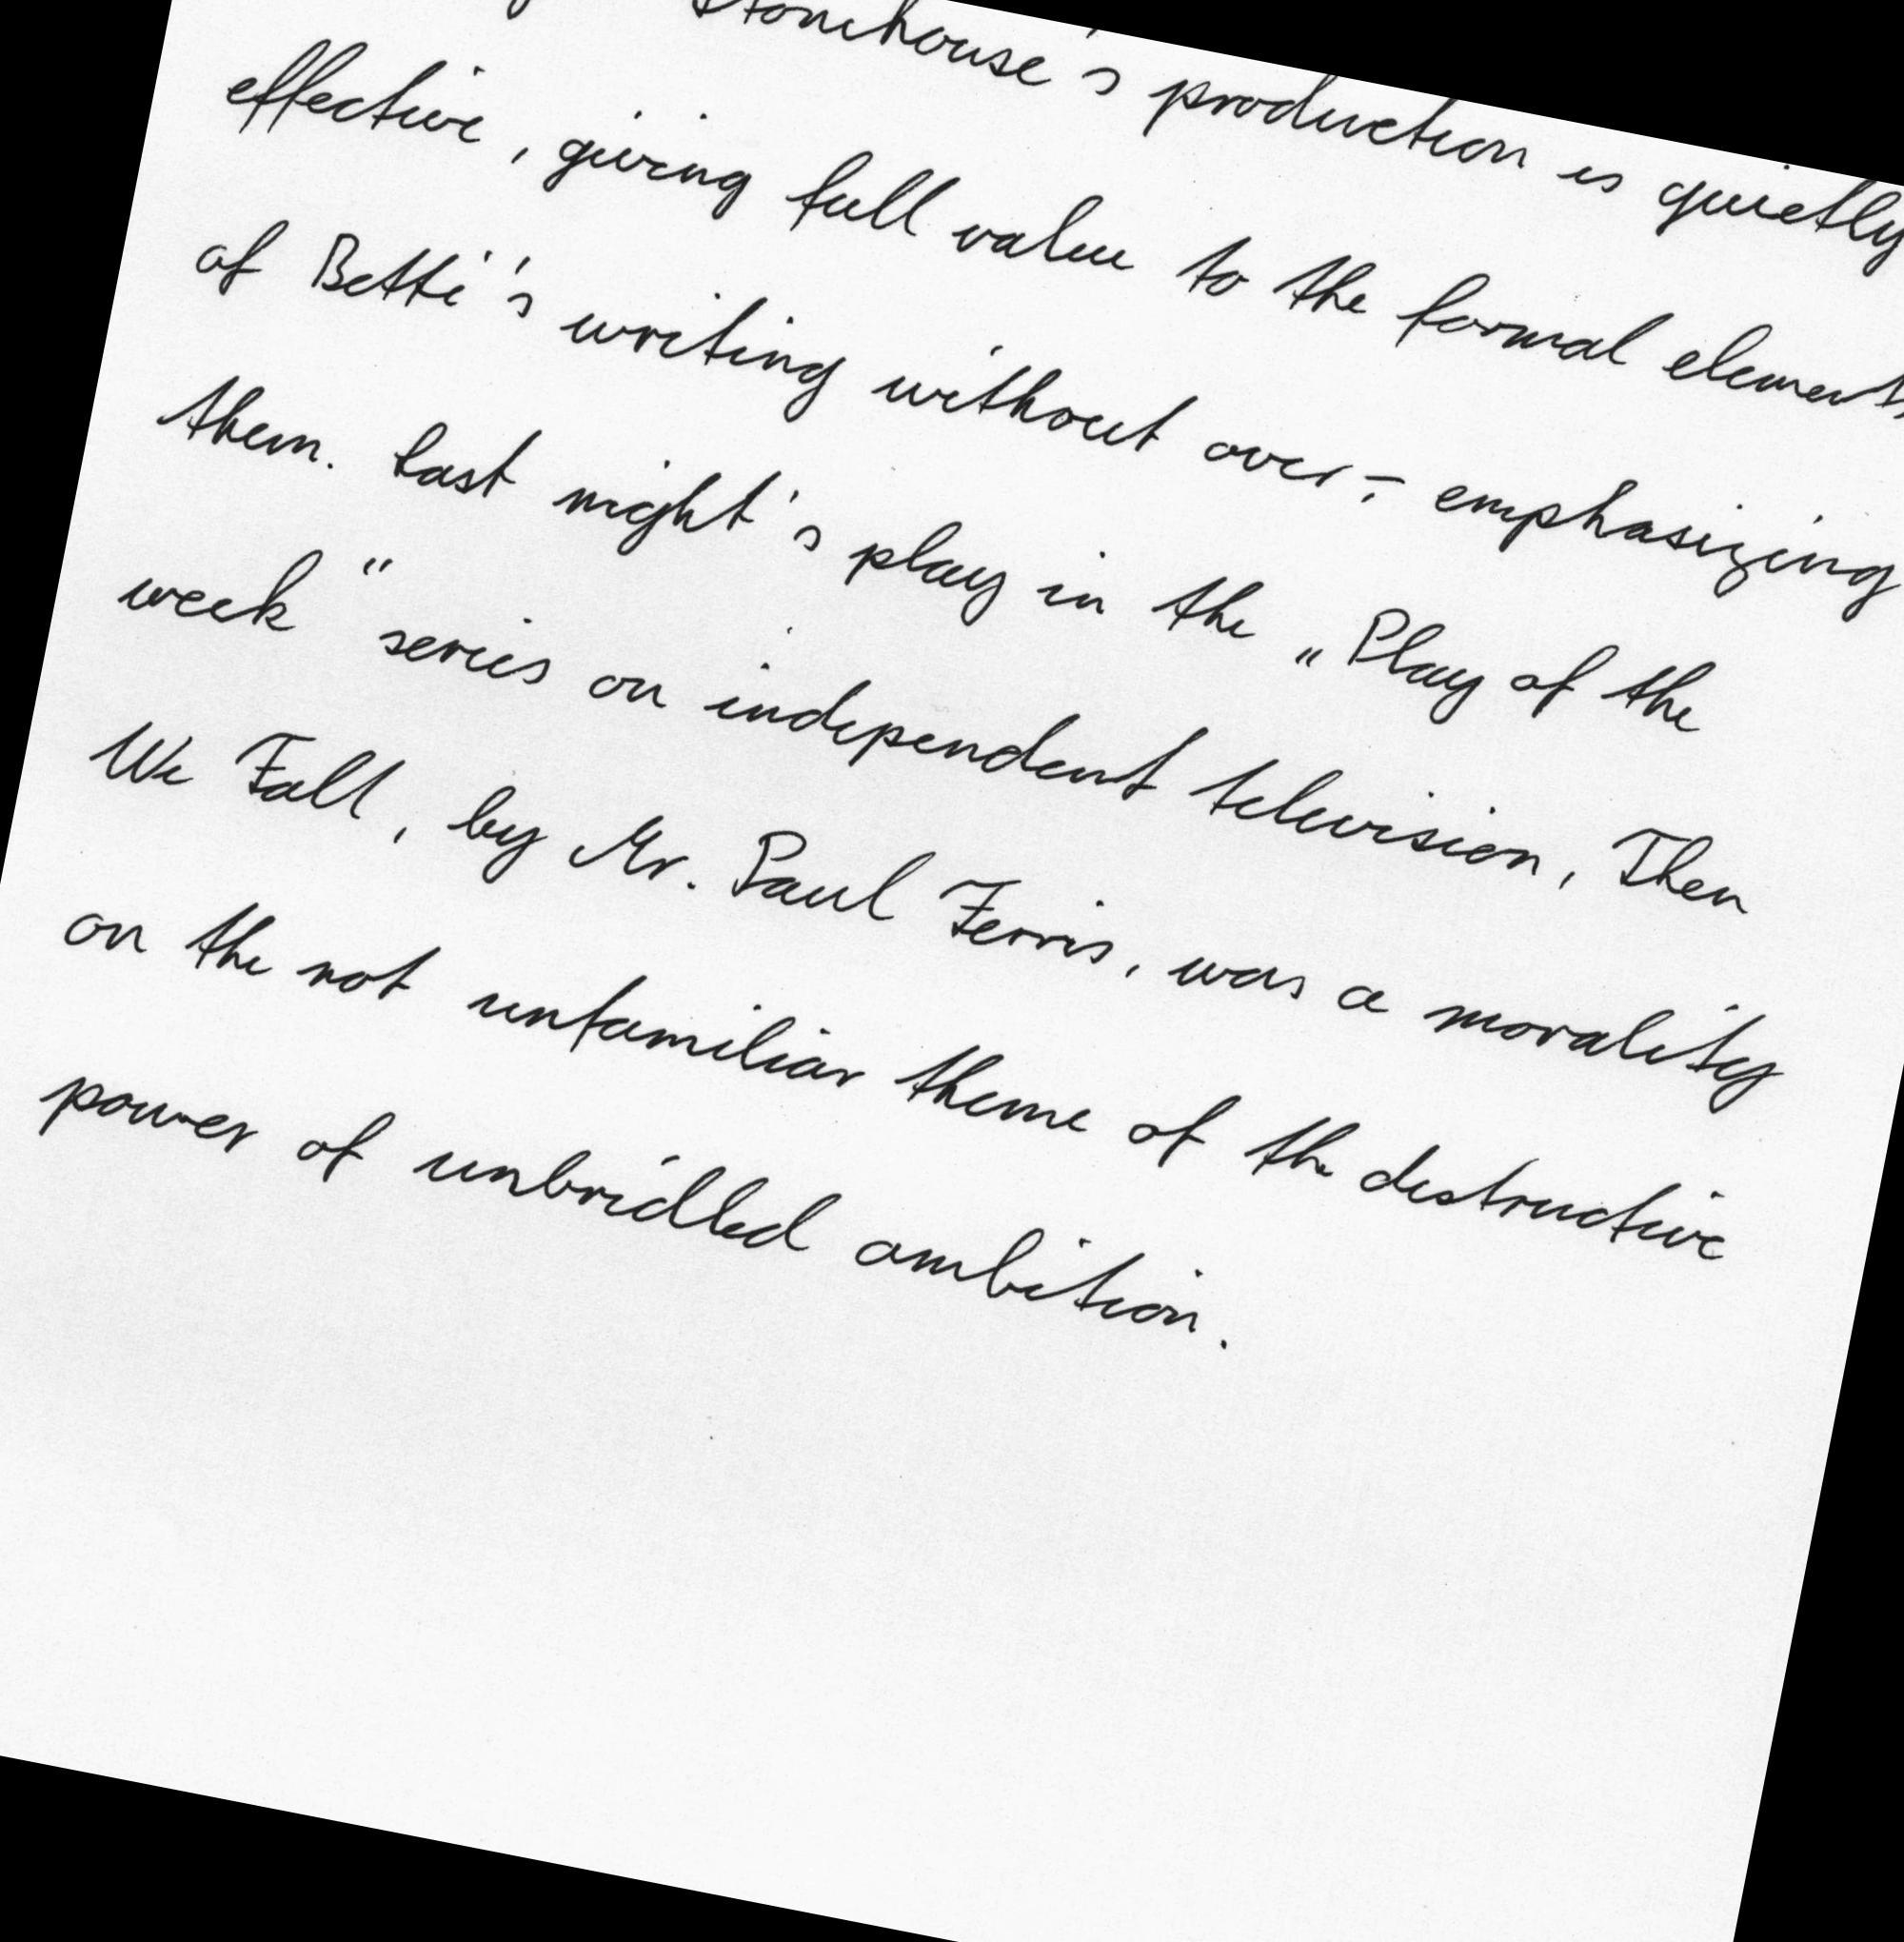 Stonehouse's production is quietly
effective, giving full value to the formal elements
of Betti's writing without over-emphasizing
them. Last night's play in the „Play of the
week" series on independent television, Then
We Fall, by Mr. Paul Ferris, was a morality
on the not unfamiliar theme of the destructive
power of unbridled ambition.